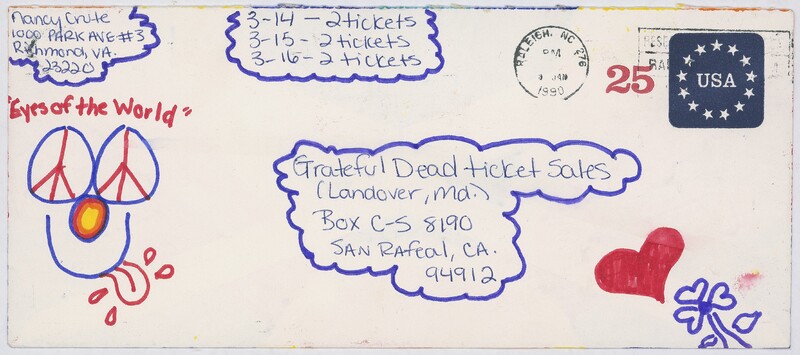 Nancy Crute
1000 PARK AVE #3
Richmond, VA.
23220
3-14 - 2 tickets
3-15 - 2 tickets
3-16 - 2 tickets
RALEIGH, NC 276
PM
JAN
1990
RA
25
USA
"Eyes of the World"
Grateful Dead ticket Sales
(Landover, Md.)
Box C-S 8190
SAN Rafeal, CA.
94912